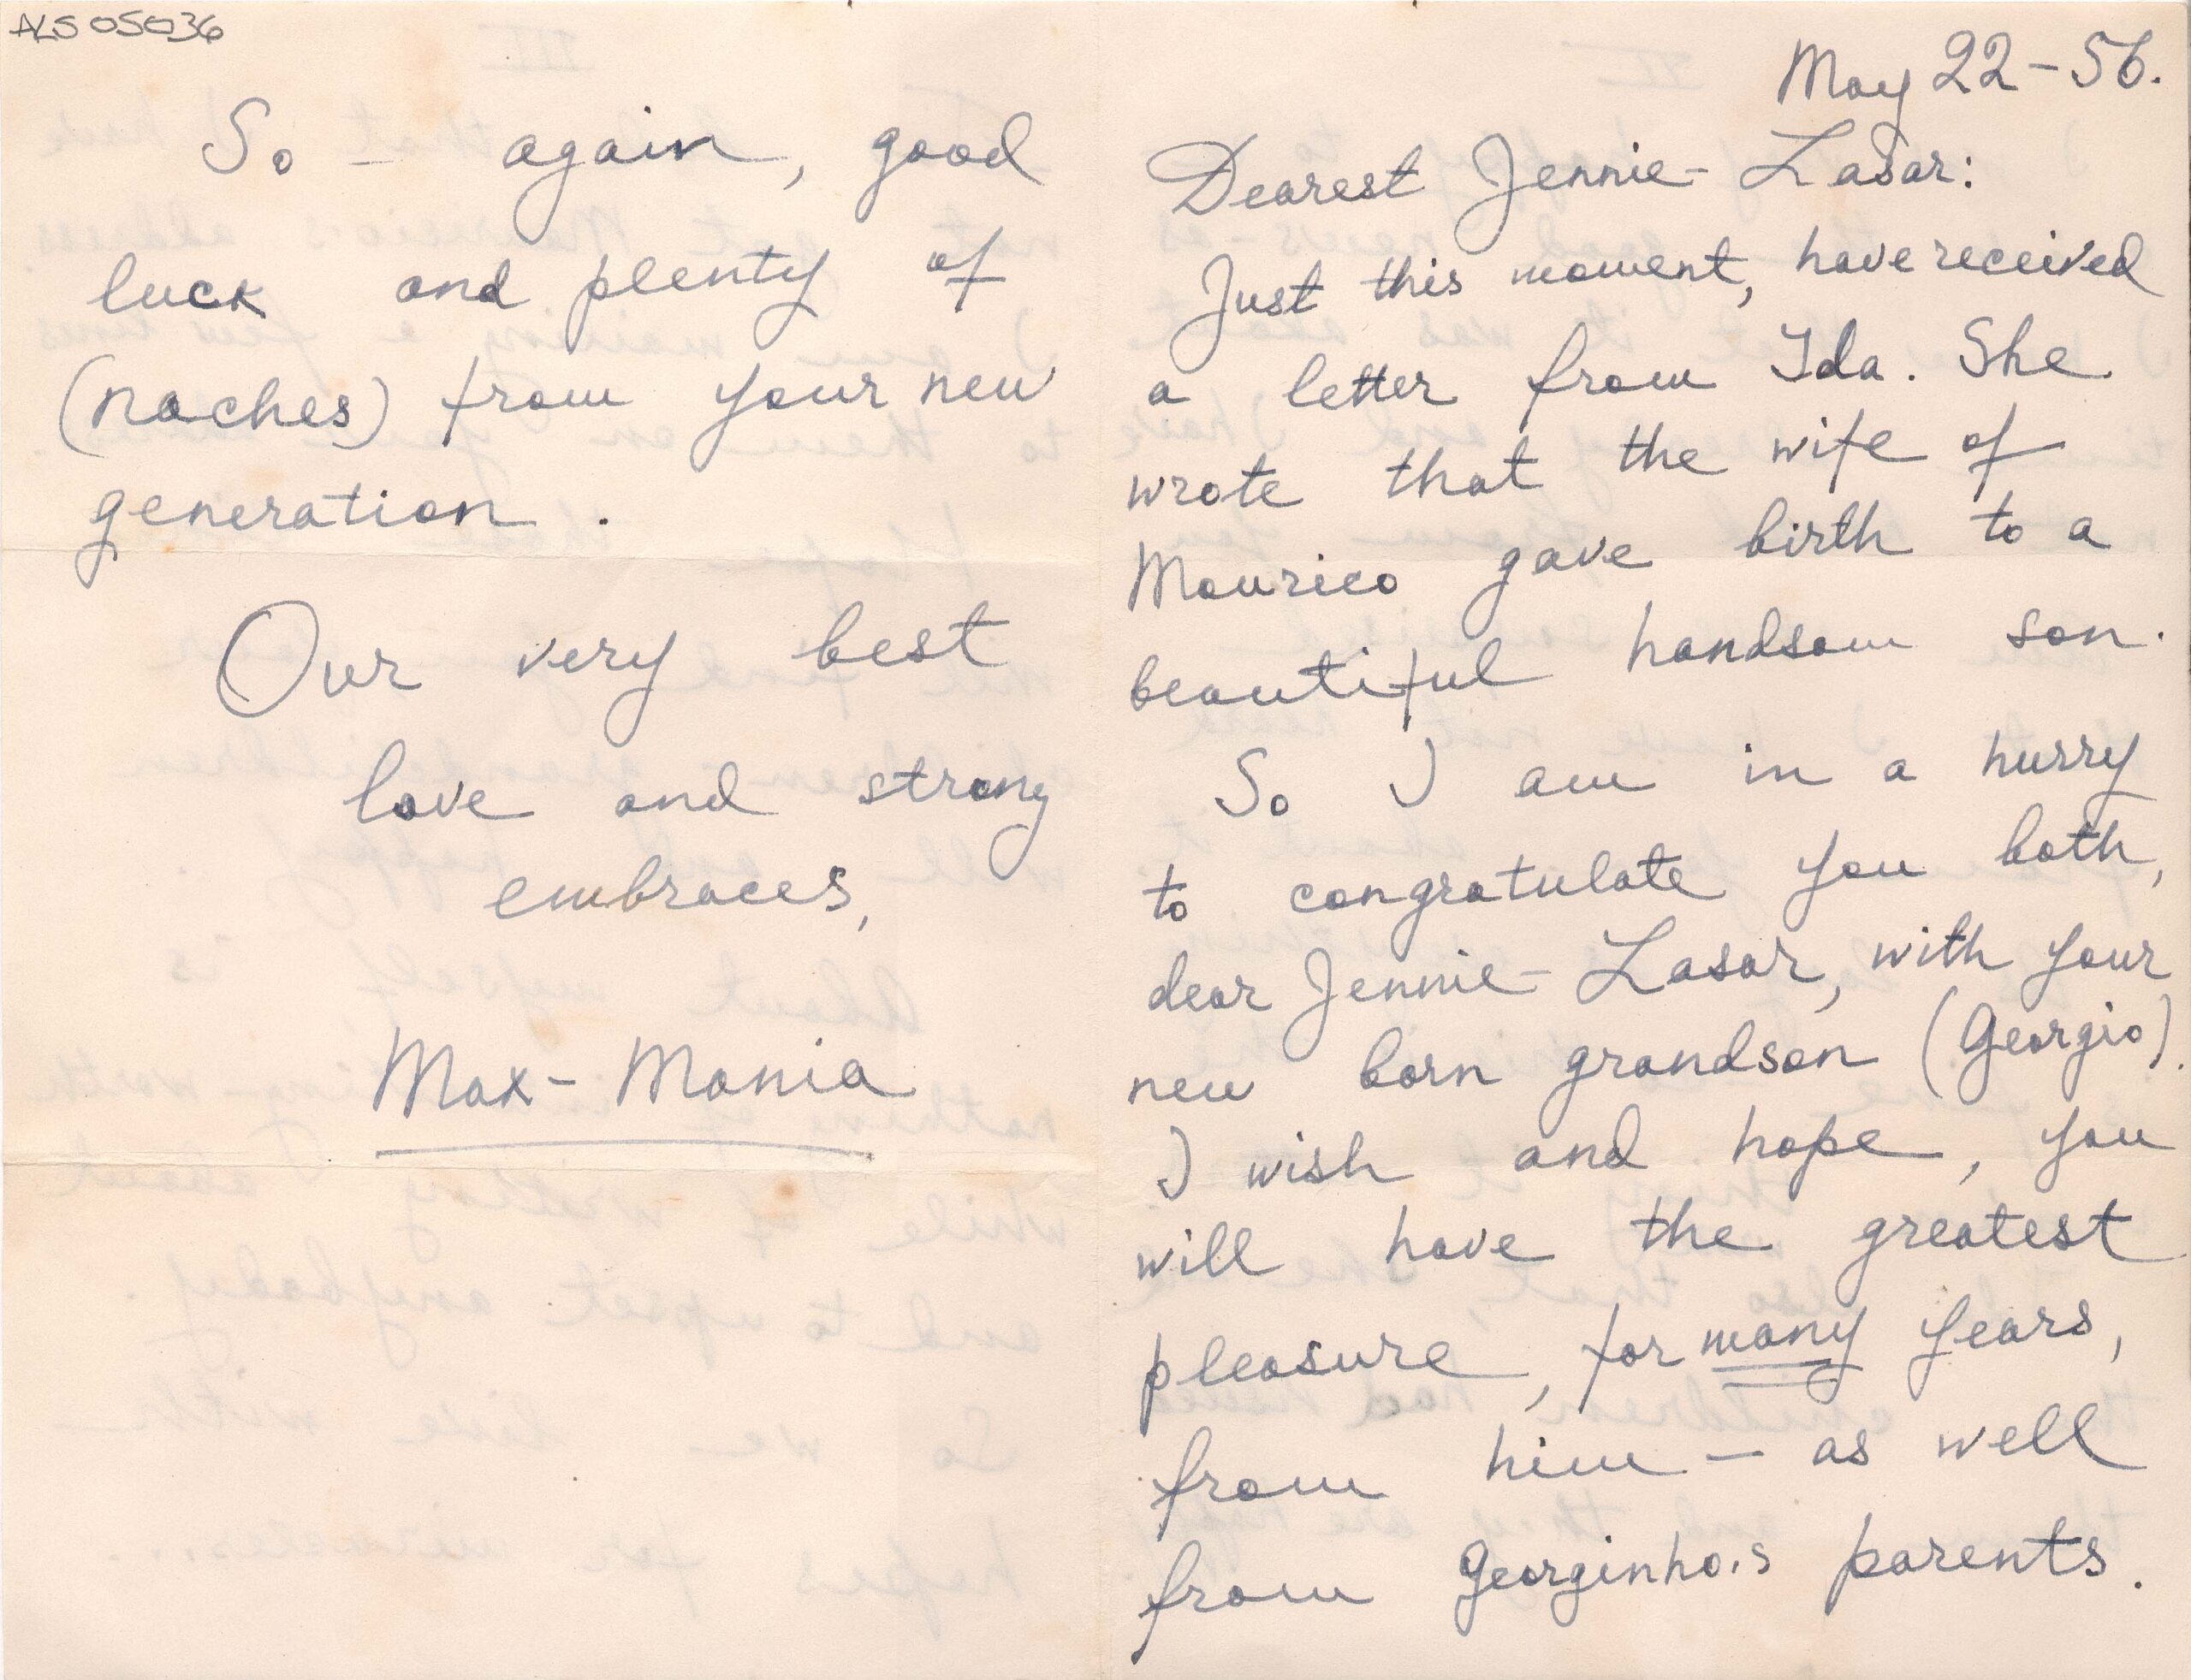 ALS 05036
May 22-56.
Dearest Jennie-Lasar:
Just this moment, have received
a letter from Ida. She
wrote that the wife of
Maurico gave birth to a
beautiful handsom son.
So I am in a hurry
to congratulate you both,
dear Jennie-Lasar, with your
new born grandson (Georgio).
I wish and hope, you
will have the greatest
pleasure, for many years,
from him — as well
from Georginho's parents.
So - again, good
luck and plenty of
(naches) from your new
generation.
Our very best
love and strong
embraces,
Max-Mania